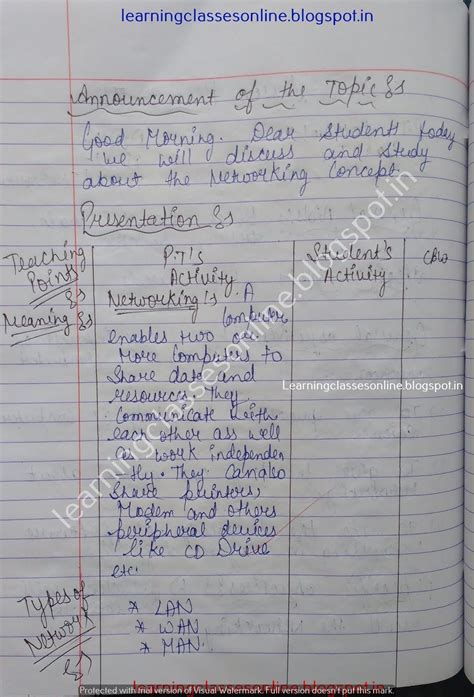 learningclassesonline.blogspot.in
Announcement of the Topic :-
Good Morning. Dear Students today
we will discuss and study
about the Networking Concept.
Presentation :-
Teaching Points :-
P.T's Activity
Student's Activity
CBW
Meaning :-
Networking :- A
Computer
enables two or
More Computers to
Share data and
resources. they
Communicate with
each other ass well
as work independen
tly. They Can also
Share printers,
Modem and others
peripheral devices
like CD Drive
etc.
Learningclassesonline.blogspot.in
learningclassesonline.blogspot.in
Types of
Network
:-
* LAN
* WAN
* MAN.
learningclassesonline.blogspot.in
Protected with trial version of Visual Watermark. Full version doesn't put this mark.